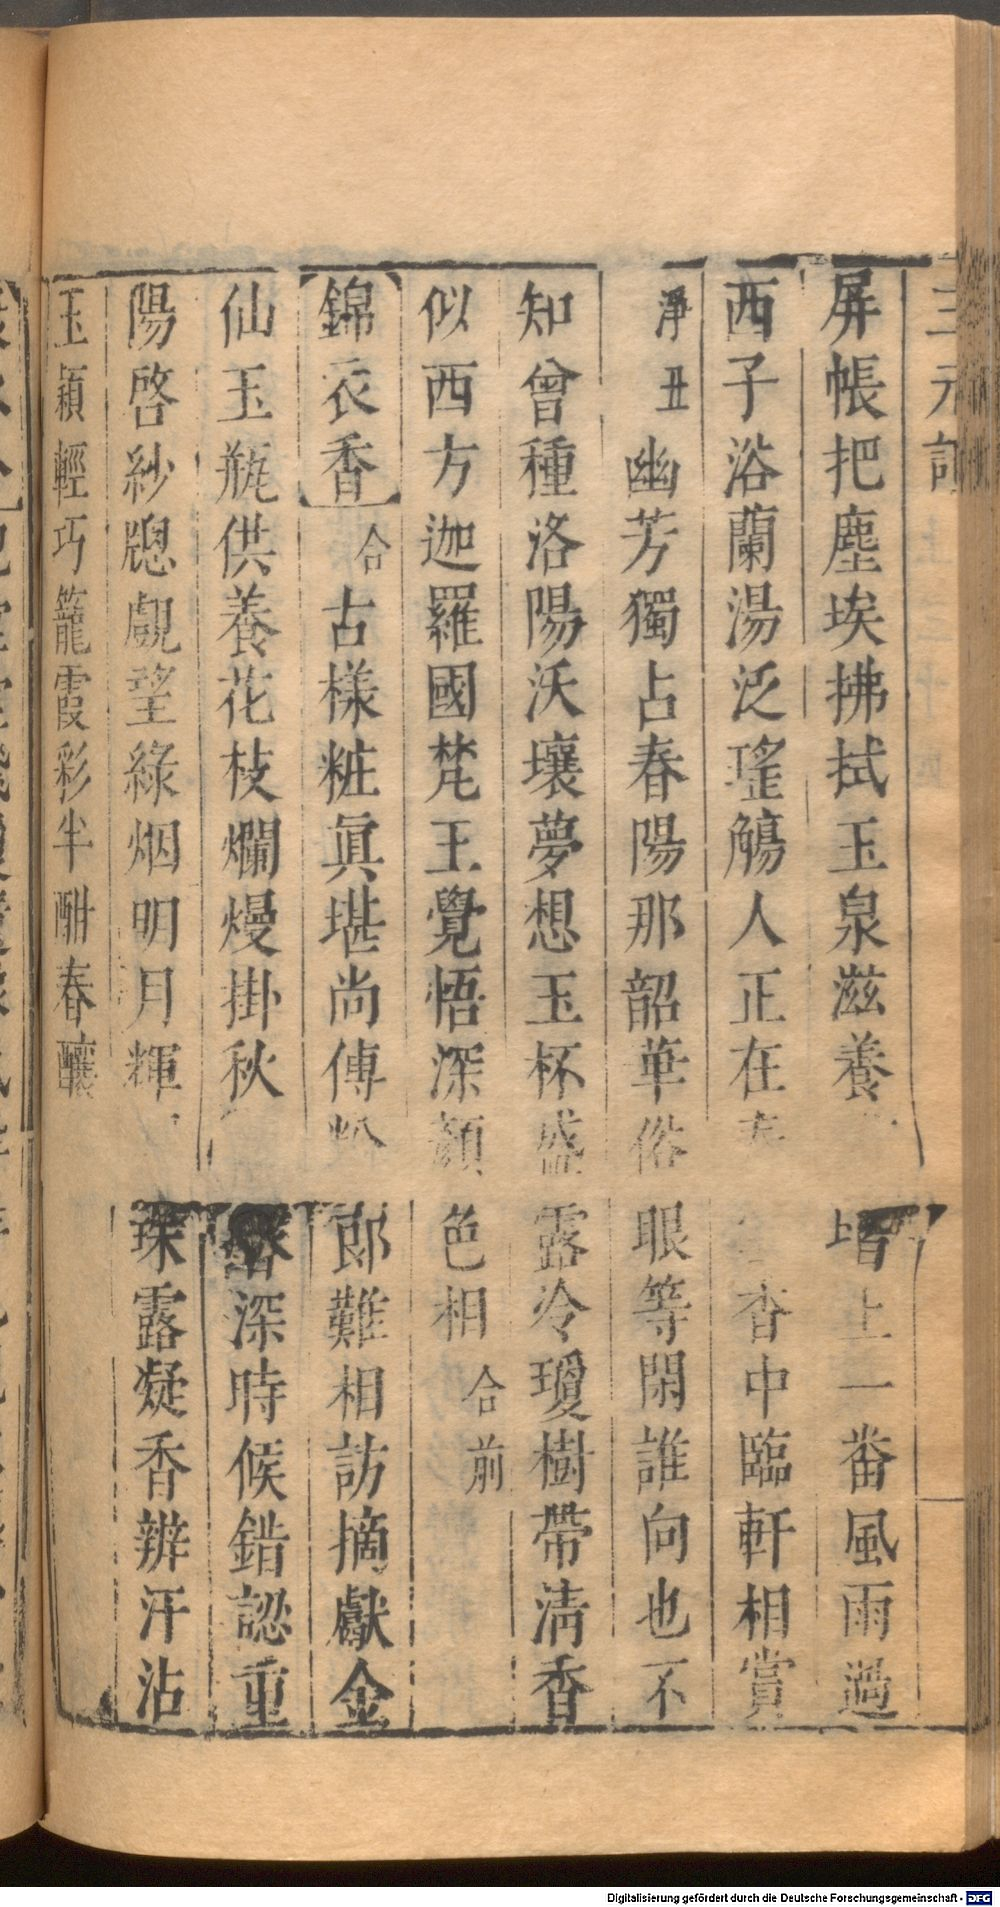 三元記
屏帳把塵埃拂拭玉泉滋養 堦上一番風雨過
西子浴蘭湯泛瑤觴人正在 香中臨軒相賞
淨丑 幽芳獨占春陽那韶華俗眼等閑誰向也不
知曾種洛陽沃壤夢想玉杯盛露冷瓊樹帶清香
似西方迦羅國梵王覺悟深顏色相 合前
錦衣香 合 古樣粧真堪尚傅粉郎難相訪摘獻金
仙玉瓶供養花枝爛熳掛秋 深時候錯認重
陽啓紗窻覷望綠烟明月輝 珠露凝香辦汗沾
玉頴輕巧籠霞彩半酣春釀
Digitalisierung gefördert durch die Deutsche Forschungsgemeinschaft - DFG